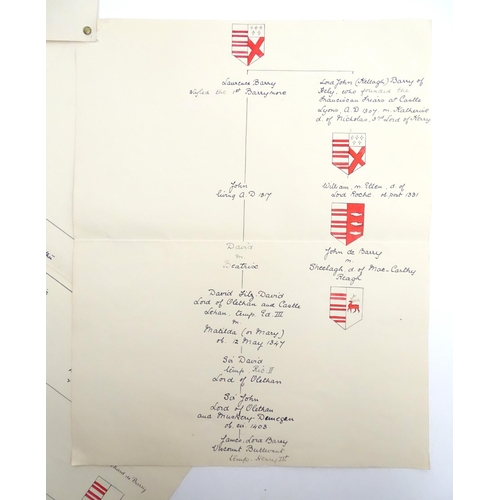 Laurence Barry
styled the 1st Barrymore
Lord John (Kellagh) Barry of
Hely, who founded the
Franciscan Friars at Castle
Lyons, A.D 1307, m. Katherine
d. of Nicholas, 3rd Lord of Kerry
John
living A.D 1317
William m. Ellen, d. of
Lord Roche. ob. post 1331
David
m
Beatrice
John de Barry
m.
Sheelagh, d. of Mac-Carthy
Reagh
David Fitz-David
Lord of Olethan and Castle
Lehan, temp. Ed. III
m
Matilda (or Mary)
ob. 12 May 1347
Sir David
temp Ric II
Lord of Olethan
Sir John
Lord of Olethan
and Muskery-Donegan
ob. in 1403
James, Lord Barry
Viscount Buttevant
temp. Henry
de Barry